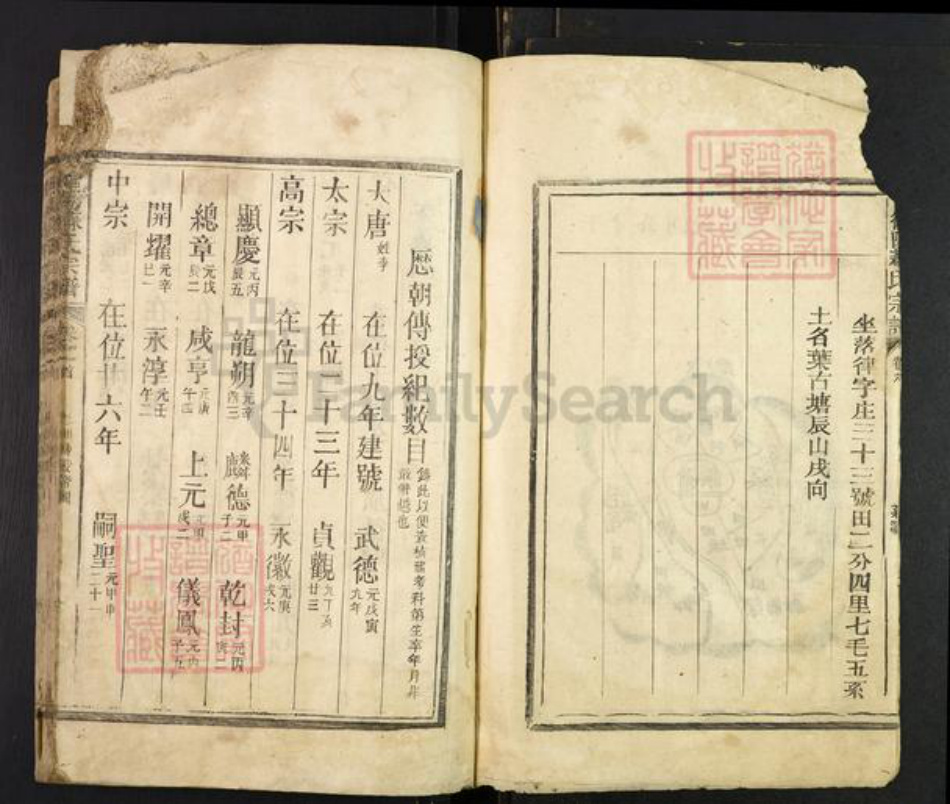 坐落律字庄三十三號田二分四里七毛五系
土名葉古塘辰山戌向
歷朝傳授紀數目 錄此以便查核譜考科第生卒年月
大唐 姓李 在位九年建號 武德 元戊寅 九年
太宗 在位二十三年 貞觀 元丁亥 廿三
高宗 在位三十四年 永徽 元庚戌 六
顯慶 元丙辰 五 龍朔 元辛酉 三 麟德 元甲子 二 乾封 元丙寅 二
總章 元戊辰 二 咸亨 元庚午 四 上元 元甲戌 二 儀鳳 元丙子 五
開耀 元辛巳 一 永淳 元壬午 二
中宗 在位廿六年 嗣聖 元甲申 二十一
氏宗譜
FamilySearch